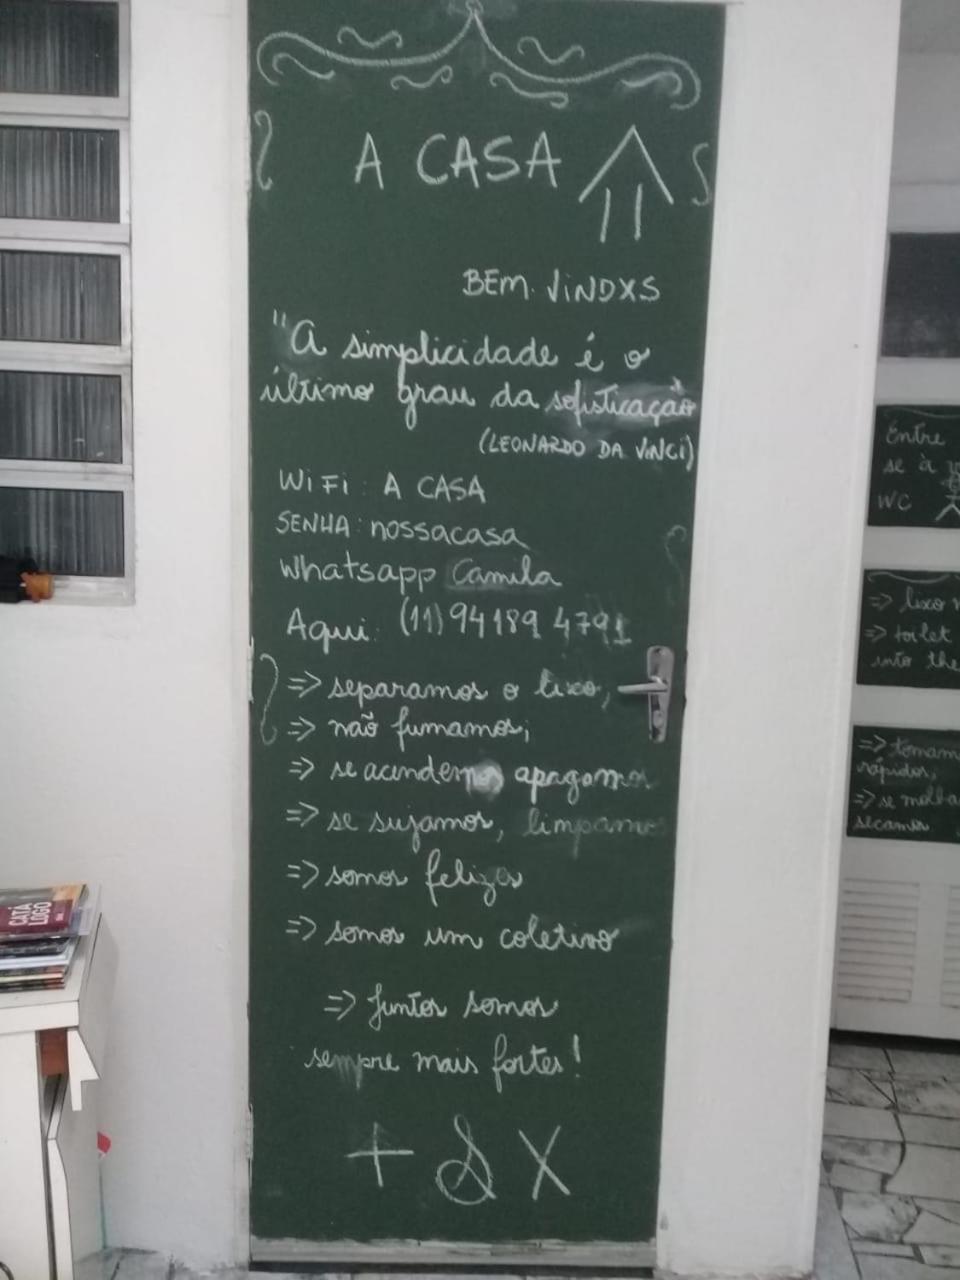 A CASA
BEM VINDXS
"A simplicidade é o
último grau da sofisticação
(LEONARDO DA VINCI)
WiFi: A CASA
SENHA: nossacasa
Whatsapp Camila
Aqui: (11) 94189 4791
=> separamos o lixo;
=> não fumamos;
=> se acendemos apagamos
=> se sujamos, limpamos
=> somos felizes
=> somos um coletivo
=> Juntos somos
sempre mais fortes!
+ & X
Entre
se à
WC
=> lixo
=> toilet
into the
=> tomam
rápidos;
=> se molha
secamos
CATÁ
LOGO